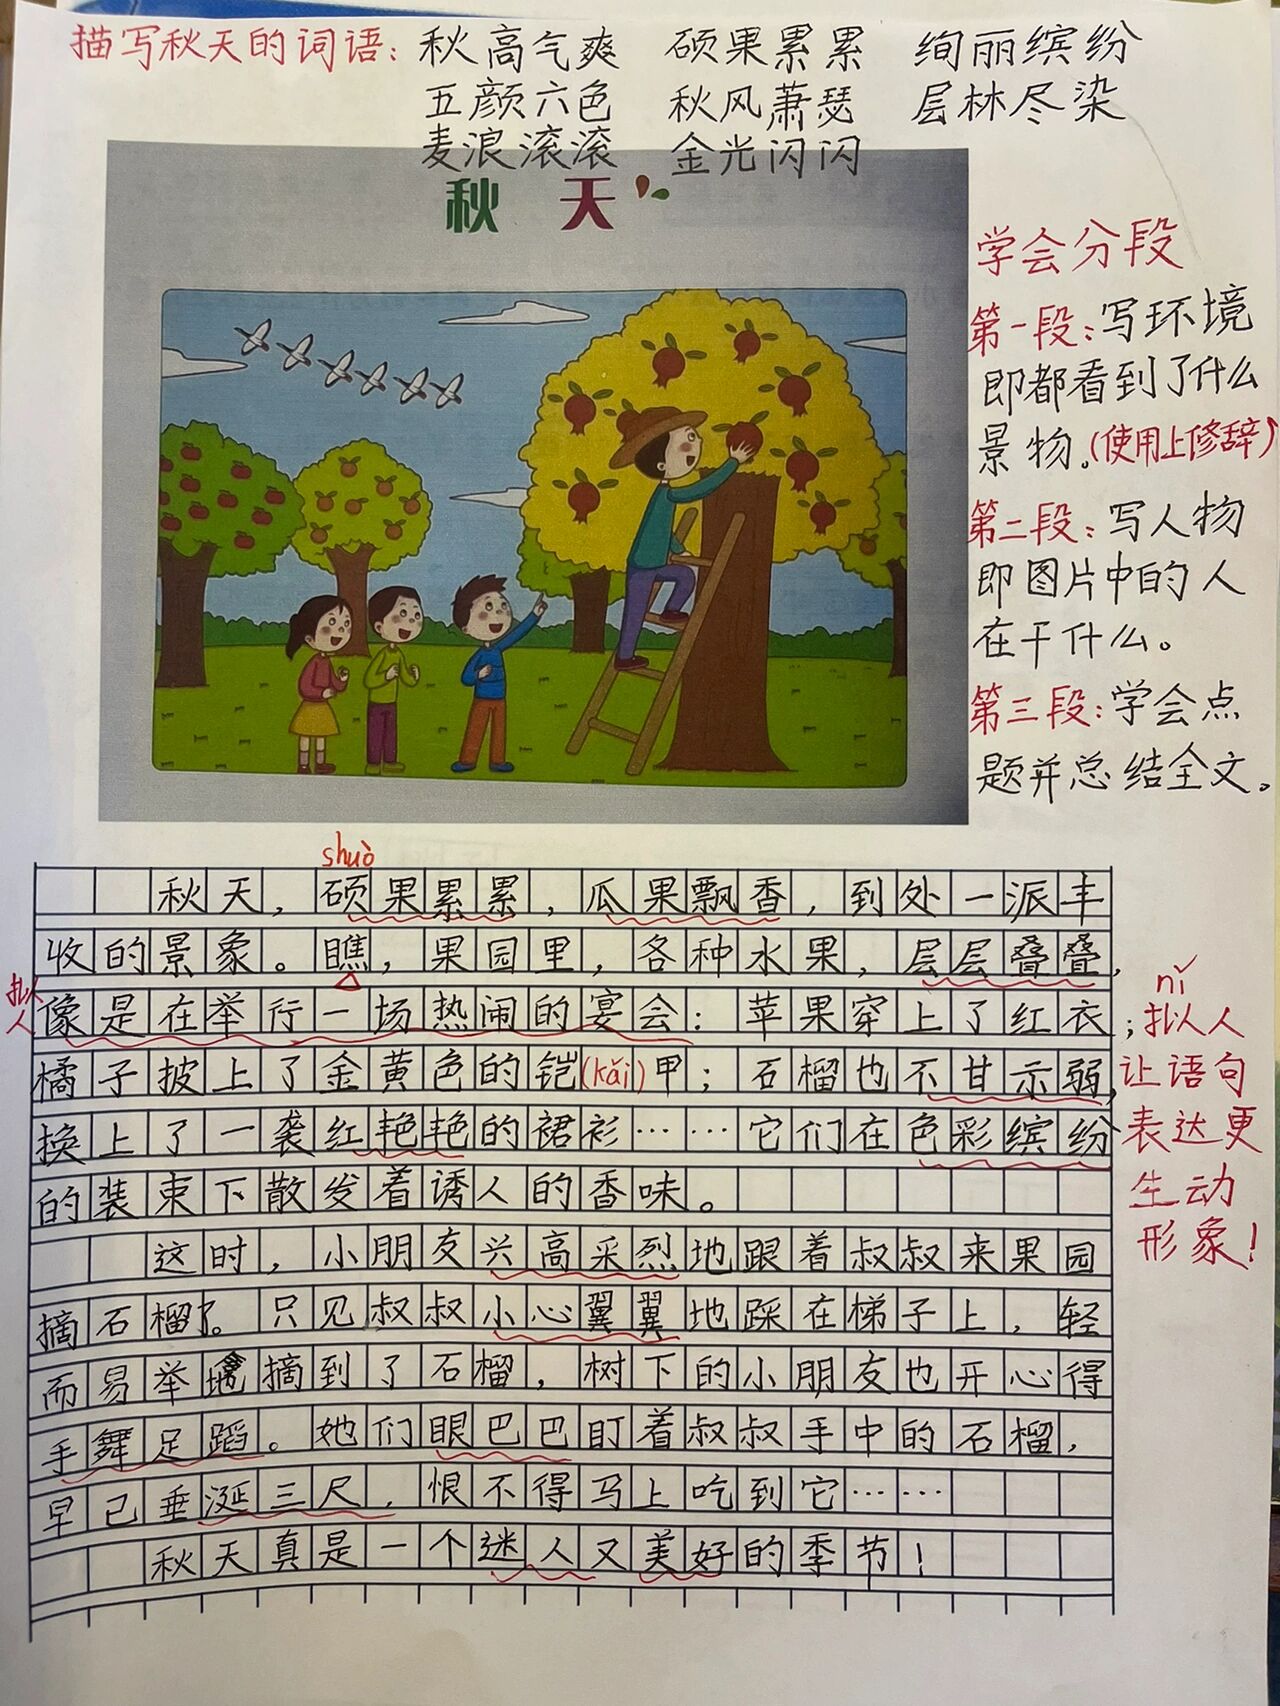 描写秋天的词语：秋高气爽 硕果累累 绚丽缤纷
五颜六色 秋风萧瑟 层林尽染
麦浪滚滚 金光闪闪
秋天
学会分段
第一段：写环境
即都看到了什么
景物。（使用上修辞）
第二段：写人物
即图片中的人
在干什么。
第三段：学会点
题并总结全文。
shuò
秋天，硕果累累，瓜果飘香，到处一派丰
收的景象。瞧，果园里，各种水果，层层叠叠，
像是在举行一场热闹的宴会：苹果穿上了红衣；
橘子披上了金黄色的铠(kǎi)甲；石榴也不甘示弱，
换上了一袭红艳艳的裙衫……它们在色彩缤纷
的装束下散发着诱人的香味。
这时，小朋友兴高采烈地跟着叔叔来果园
摘石榴了。只见叔叔小心翼翼地踩在梯子上，轻
而易举地摘到了石榴，树下的小朋友也开心得
手舞足蹈。她们眼巴巴盯着叔叔手中的石榴，
早已垂涎三尺，恨不得马上吃到它……
秋天真是一个迷人又美好的季节！
拟人
nǐ
拟人
让语句
表达更
生动
形象！